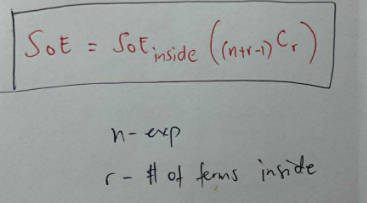 SOE = SOE inside ((n+r-1)Cr)
n - exp
r - # of terms inside